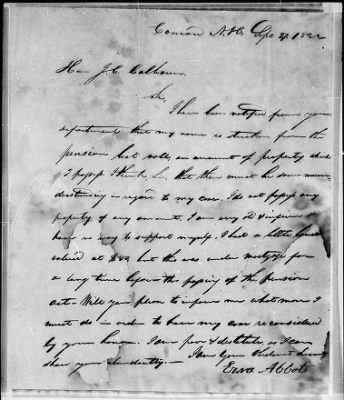 Sept 24 1822
Hon J.C. Calhoun
Sir
I have been notified from your
department that my name is stricken from the
pension list rolls, on account of property which
I possess. I think, Sir, that there must be some misun-
derstanding in regard to my case. I do not possess any
property of any amount. I am very old & infirm &
have no way to support myself. I had a little land
valued at $82, but this was under mortgage for
a long time before the passing of the pension
act - Will you please to inform me what more I
must do in order to have my case reconsidered
by your honor. I am poor & destitute, as I can
show you abundantly - I am your obedient servant
Ezra Abbott